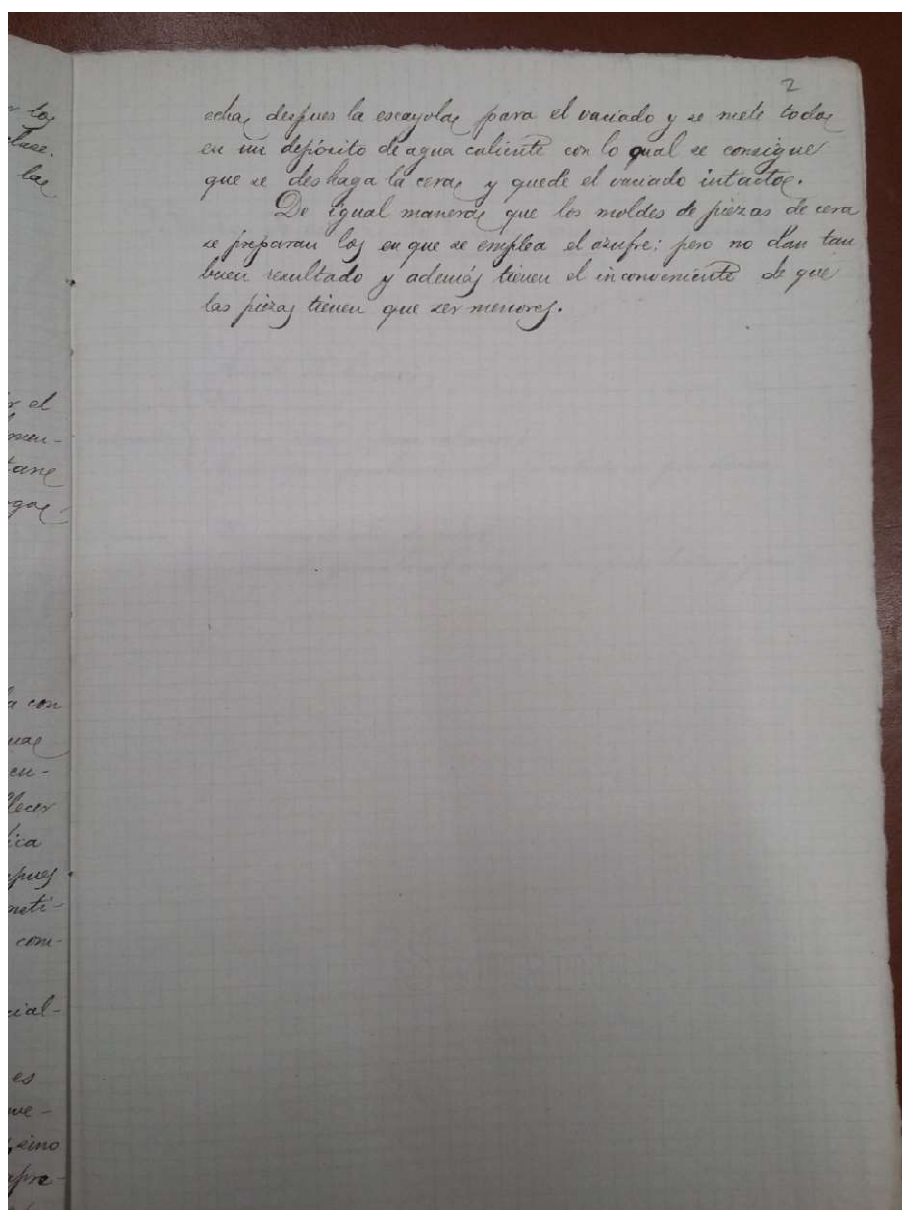 2
echa despues la escayola para el vaciado y se mete todo
en un depósito de agua caliente con lo qual se consigue
que se deshaga la cera y quede el vaciado intacto.
De igual manera que los moldes de piezas de cera
se preparan los en que se emplea el azufre; pero no dan tan
buen resultado y además tienen el inconveniente de que
las piezas tienen que ser menores.
los
clase.
las
el
con
en-
lecer
com-
cial-
es
sino